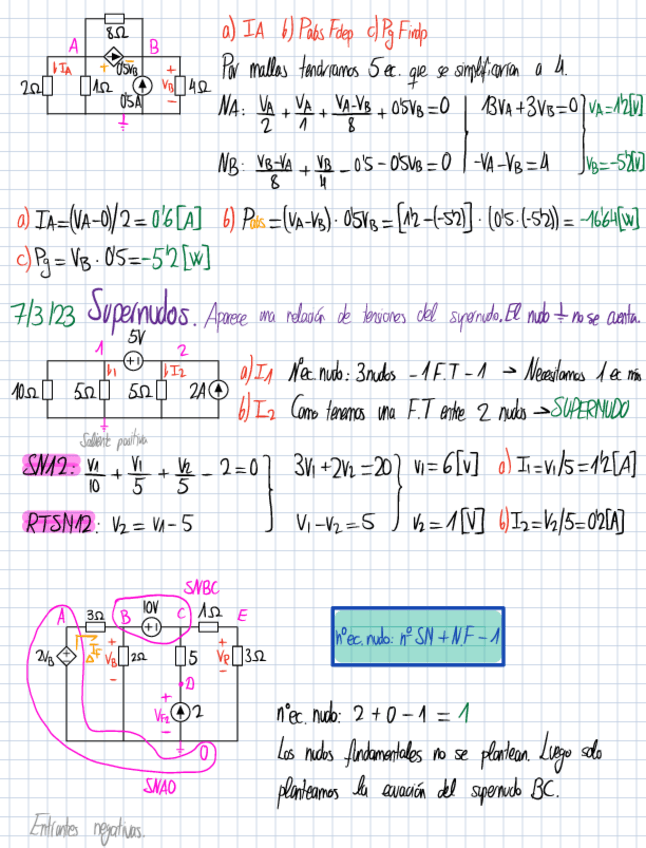 8Ω
a) IA b) Pabs Fdep c) Pg Findp
A B
0'5VB
IA
2Ω 1Ω 0'5A VB 4Ω
Por mallas tendríamos 5 ec. que se simplificarían a 4.
NA: VA/2 + VA/1 + (VA-VB)/8 + 0'5VB = 0 | 13VA + 3VB = 0 } VA = 1'2[V]
NB: (VB-VA)/8 + VB/4 - 0'5 - 0'5VB = 0 | -VA - VB = 4 } VB = -5'2[V]
a) IA = (VA-0)/2 = 0'6 [A] b) Pabs = (VA-VB) · 0'5VB = [1'2 - (-5'2)] · (0'5 · (-5'2)) = -16'64[W]
c) Pg = VB · 0'5 = -5'2 [W]
7/3/23 Supernudos. Aparece una relación de tensiones del supernudo. El nudo ⏚ no se cuenta.
5V
1 2
I1 I2
10Ω 5Ω 5Ω 2A
a) I1 Nºec. nudo: 3 nudos - 1 F.T - 1 → Necesitamos 1 ec más
b) I2 Como tenemos una F.T entre 2 nudos → SUPERNUDO
Saliente positiva
SN12: V1/10 + V1/5 + V2/5 - 2 = 0 } 3V1 + 2V2 = 20 } V1 = 6 [V] a) I1 = V1/5 = 1'2 [A]
RTSN12: V2 = V1 - 5 } V1 - V2 = 5 } V2 = 1 [V] b) I2 = V2/5 = 0'2[A]
SNBC
A 3Ω B 10V C 1Ω E
2VB IF VB 2Ω 5 VP 3Ω
D
VF2 2
0
SNA0
nºec. nudo: nº SN + N.F - 1
nºec. nudo: 2 + 0 - 1 = 1
Los nudos fundamentales no se plantean. Luego solo
planteamos la ecuación del supernudo BC.
Entrantes negativas.